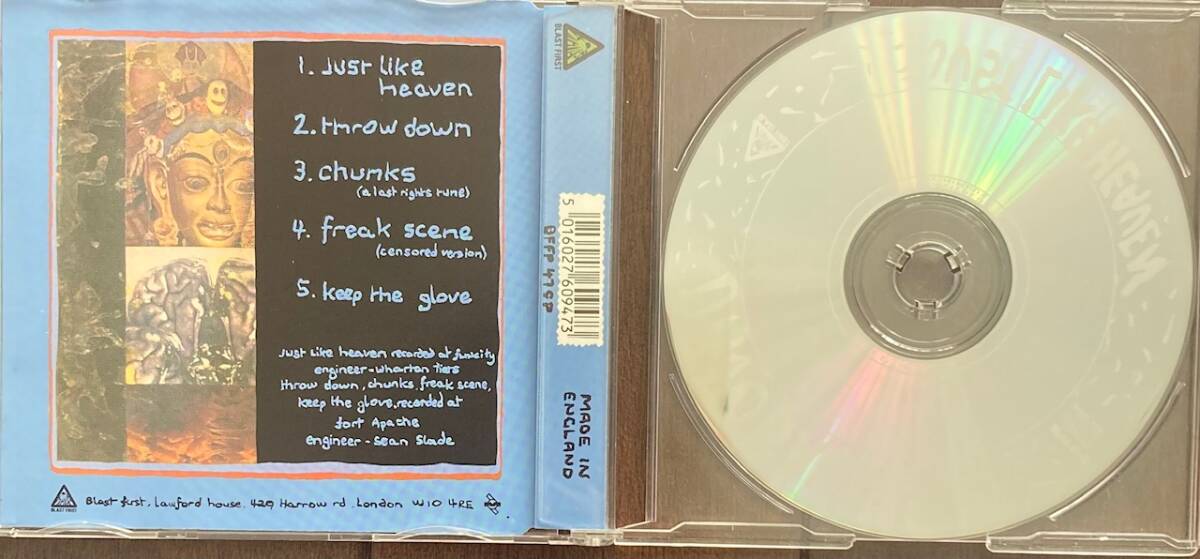 1. Just like
heaven
2. throw down
3. chunks
(a last rights tune)
4. freak scene
(censored version)
5. keep the glove
Just like heaven recorded at funcity
engineer-wharton tiers
throw down, chunks, freak scene,
keep the glove, recorded at
fort Apache
engineer-sean slade
BLAST FIRST
Blast first. Lawford house. 429 Harrow rd. London W10 4RE
BLAST FIRST
5 016027 609473
BFFP 47 CP
MADE IN
ENGLAND
HEAVEN